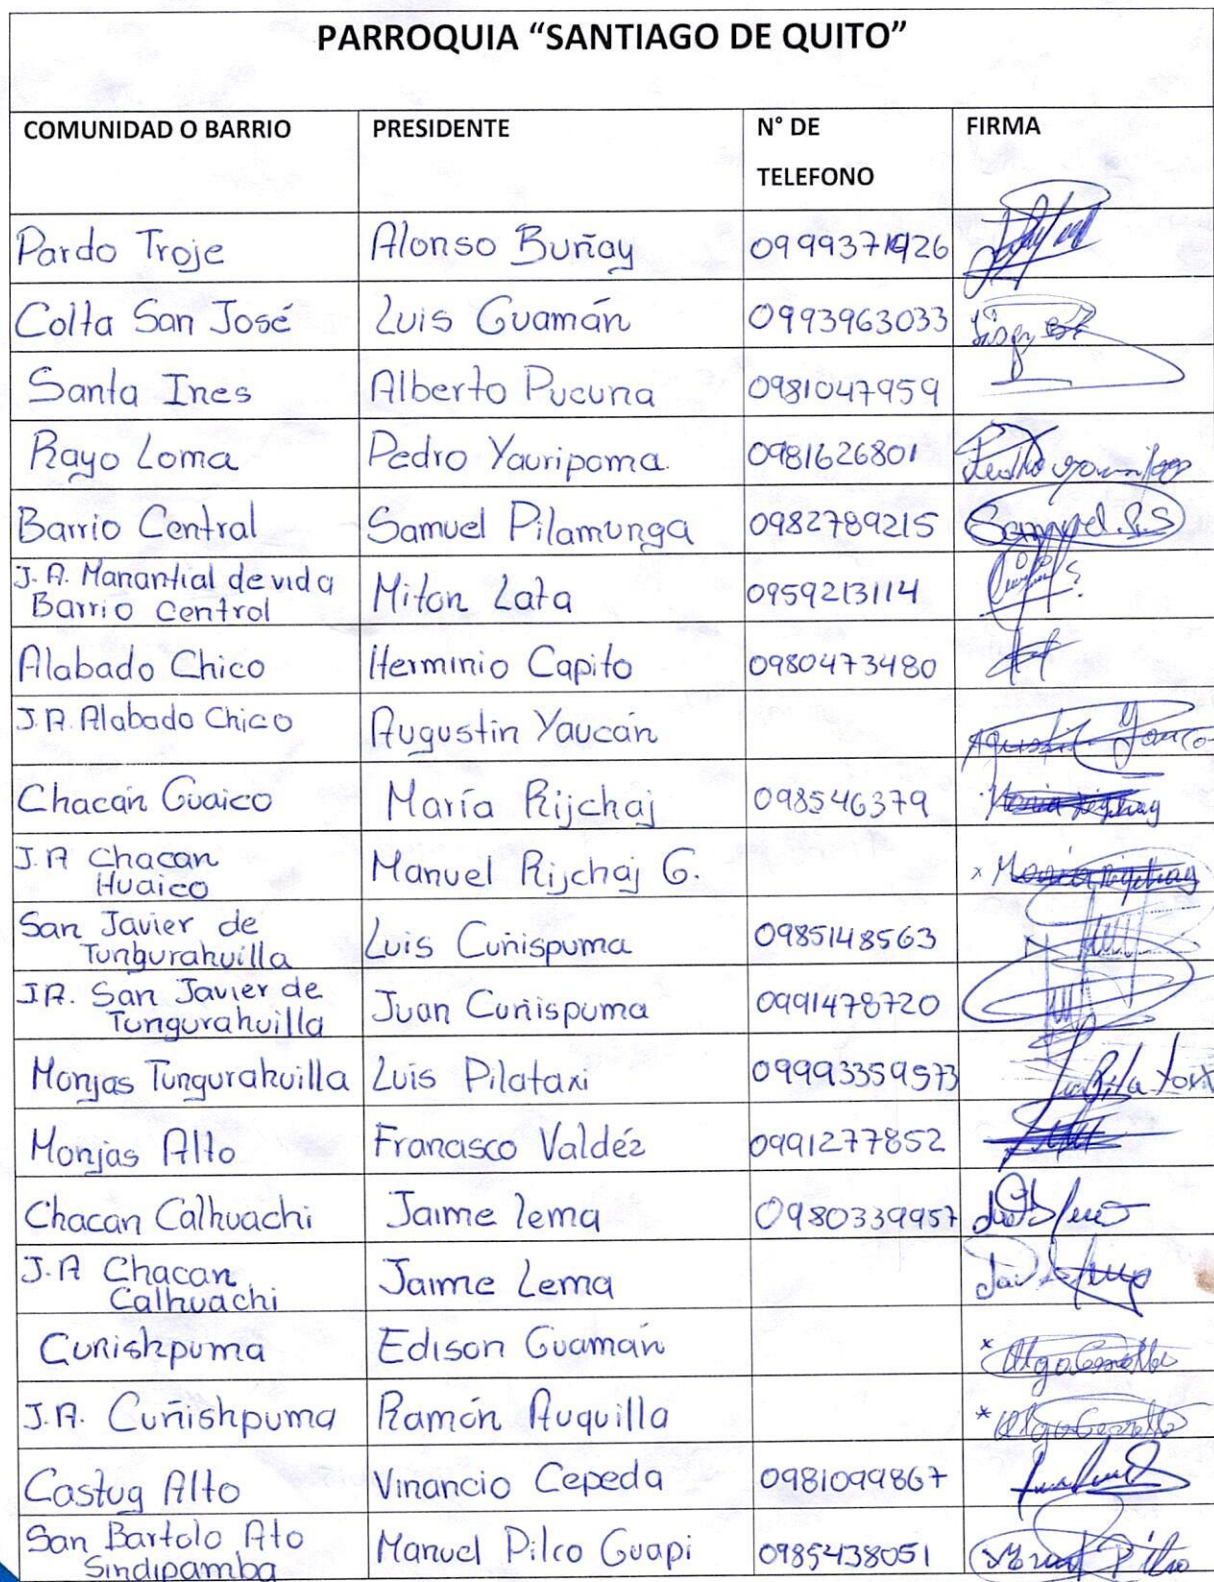 PARROQUIA “SANTIAGO DE QUITO”
COMUNIDAD O BARRIO PRESIDENTE N° DE TELEFONO FIRMA
Pardo Troje Alonso Buñay
Colta San José Luis Guamán 0993963033
Santa Ines Alberto Pucuna 0981047959
Rayo Loma Pedro Yauripoma. 0981626801
Barrio Central Samuel Pilamunga 0982789215 Samuel. S.S
J. A. Manantial de vida
Barrio Central Miton Lata 0959213114
Alabado Chico Herminio Capito 0980473480
J.A. Alabado Chico Augustin Yaucán
Chacán Guaico María Rijchaj 098546379
J.A Chacan
Huaico Manuel Rijchaj G.
San Javier de
Tungurahuilla Luis Cuñispuma 0985148563
JA. San Javier de
Tungurahuilla Juan Cuñispuma 0991478720
Monjas Tungurahuilla Luis Pilataxi 09993359573
Monjas Alto Francisco Valdéz 0991277852
Chacan Calhuachi Jaime lema 0980339957
J.A Chacan
Calhuachi Jaime Lema
Cuñishpuma Edison Guamán
J.A. Cuñishpuma Ramón Auquilla
Castug Alto Vinancio Cepeda 0981099867
San Bartolo Ato
Sindipamba Manuel Pilco Guapi 0985438051